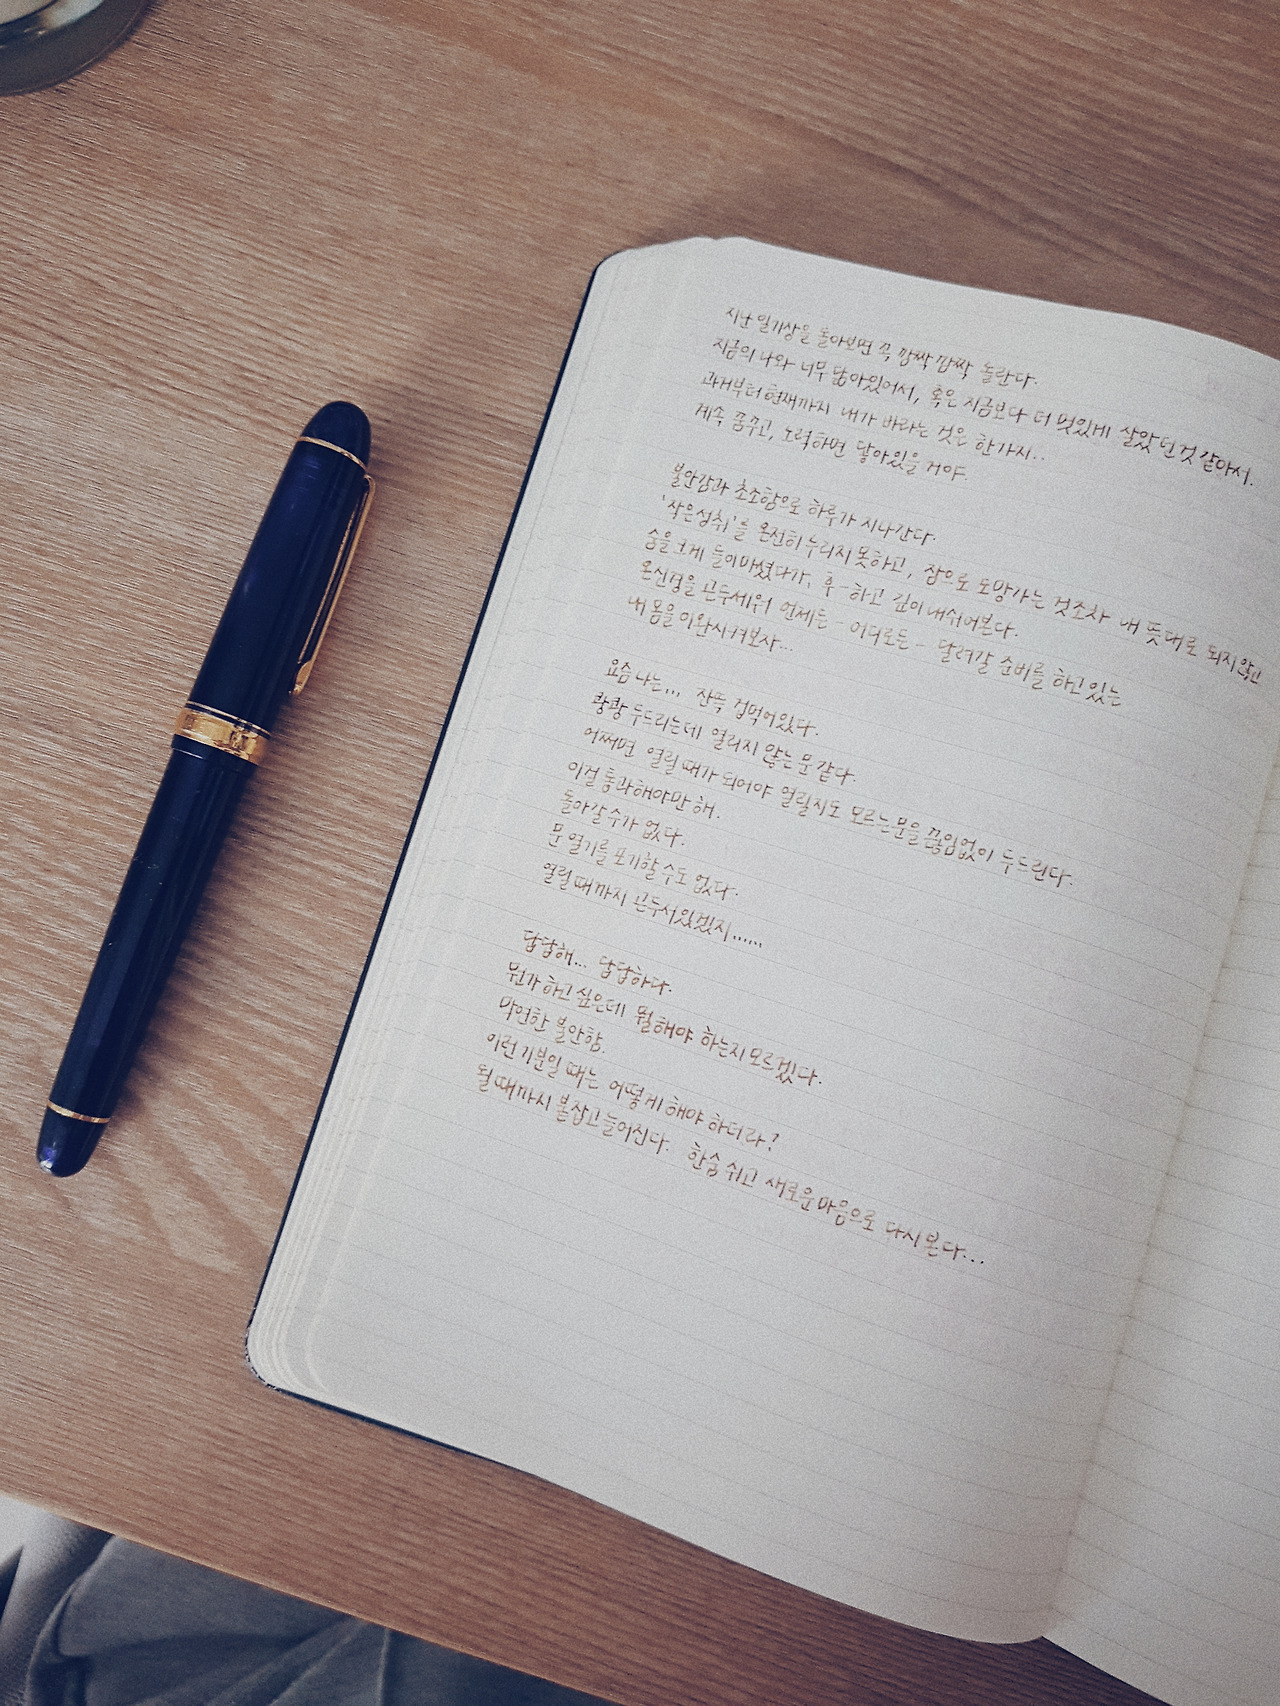 지난 일기장을 돌아보면 꼭 깜짝 깜짝 놀란다.
지금의 나와 너무 닮아있어서, 혹은 지금보다 더 멋있게 살았던것 같아서.
과거부터 현재까지 내가 바라는 것은 한가지..
계속 꿈꾸고, 노력하면 닿아있을 거야.
불안감과 초조함으로 하루가 지나간다.
'작은성취'를 온전히 누리지 못하고, 잠으로 도망가는 것조차 내 뜻대로 되지않고
숨을 크게 들이마셨다가, 후-하고 깊이 내쉬어본다.
온신경을 곤두세워 언제든 - 어디로든 - 달려갈 준비를 하고 있는
내 몸을 이완시켜보자...
요즘 나는... 잔뜩 겁먹어있다.
쾅쾅 두드리는데 열리지 않는 문 같다.
어쩌면 열릴 때가 되어야 열릴지도 모르는 문을 끊임없이 두드린다.
이걸 통과해야만 해.
돌아갈 수가 없다.
문 열기를 포기할 수도 없다.
열릴 때까지 곤두서있겠지......
답답해... 답답하다.
뭔가 하고 싶은데 뭘해야 하는지 모르겠다.
막연한 불안함.
이런 기분일 때는 어떻게 해야 하더라?
될 때까지 붙잡고 늘어진다. 한숨 쉬고 새로운 마음으로 다시 본다...